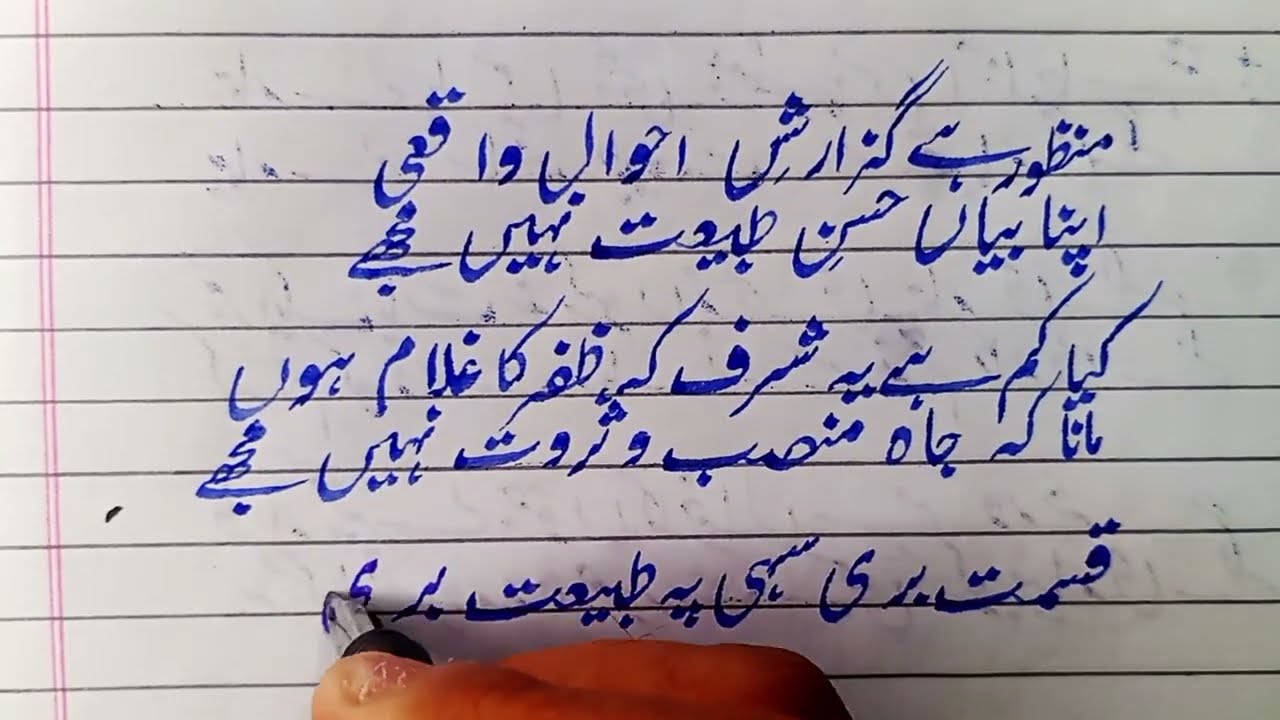 منظور ہے گزارشِ احوال واقعی
اپنا بیاں حسنِ طبیعت نہیں مجھے
کیا کم ہے یہ شرف کہ ظفر کا غلام ہوں
مانا کہ جاہ منصب و ثروت نہیں مجھے
قسمت بری سہی پہ طبیعت بری